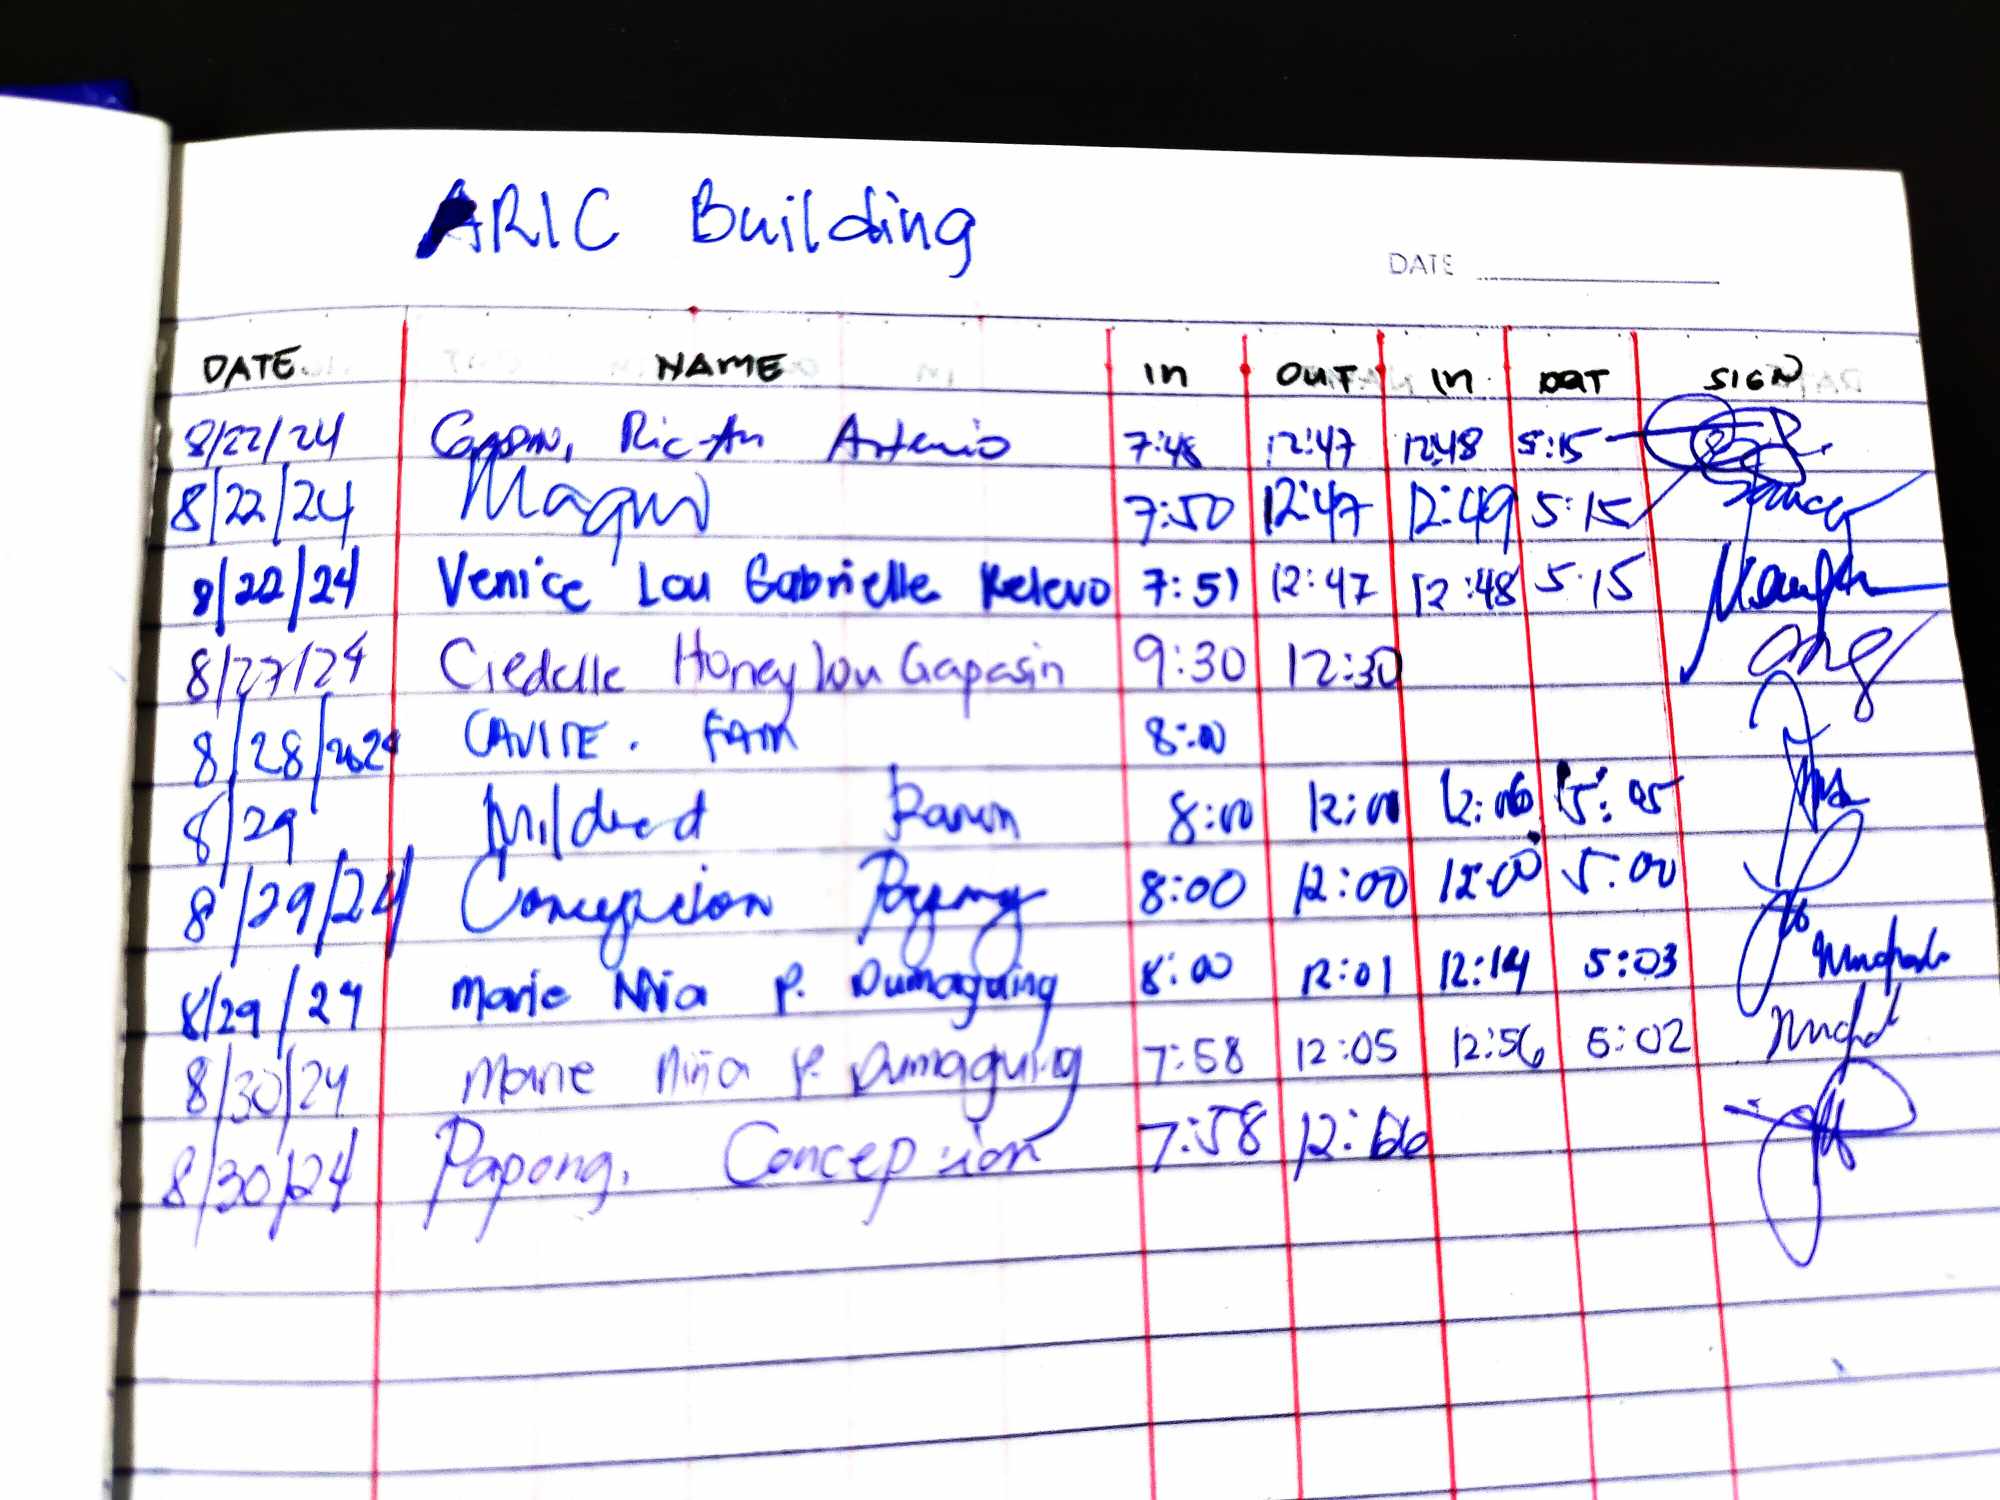 ARIC Building
DATE
DATE NAME In OUT In OUT SIGN
8/22/24 Ric-An Artenio 7:48 12:47 12:48 5:15
8/22/24 7:50 12:47 12:49 5:15
8/22/24 Venice Lou Gabrielle Relevo 7:51 12:47 12:48 5:15
8/27/24 Honeylou Gapasin 9:30 12:30
8/28/2024 CAVITE. FAM 8:00
8/29 Mildred 8:00 12:00 12:06 5:05
8/29/24 Concepcion Papong 8:00 12:00 12:00 5:00
8/29/24 Marie Niña P. Dumaguing 8:00 12:01 12:14 5:03
8/30/24 Marie Niña P. Dumaguing 7:58 12:05 12:56 5:02
8/30/24 Papong, Concepcion 7:58